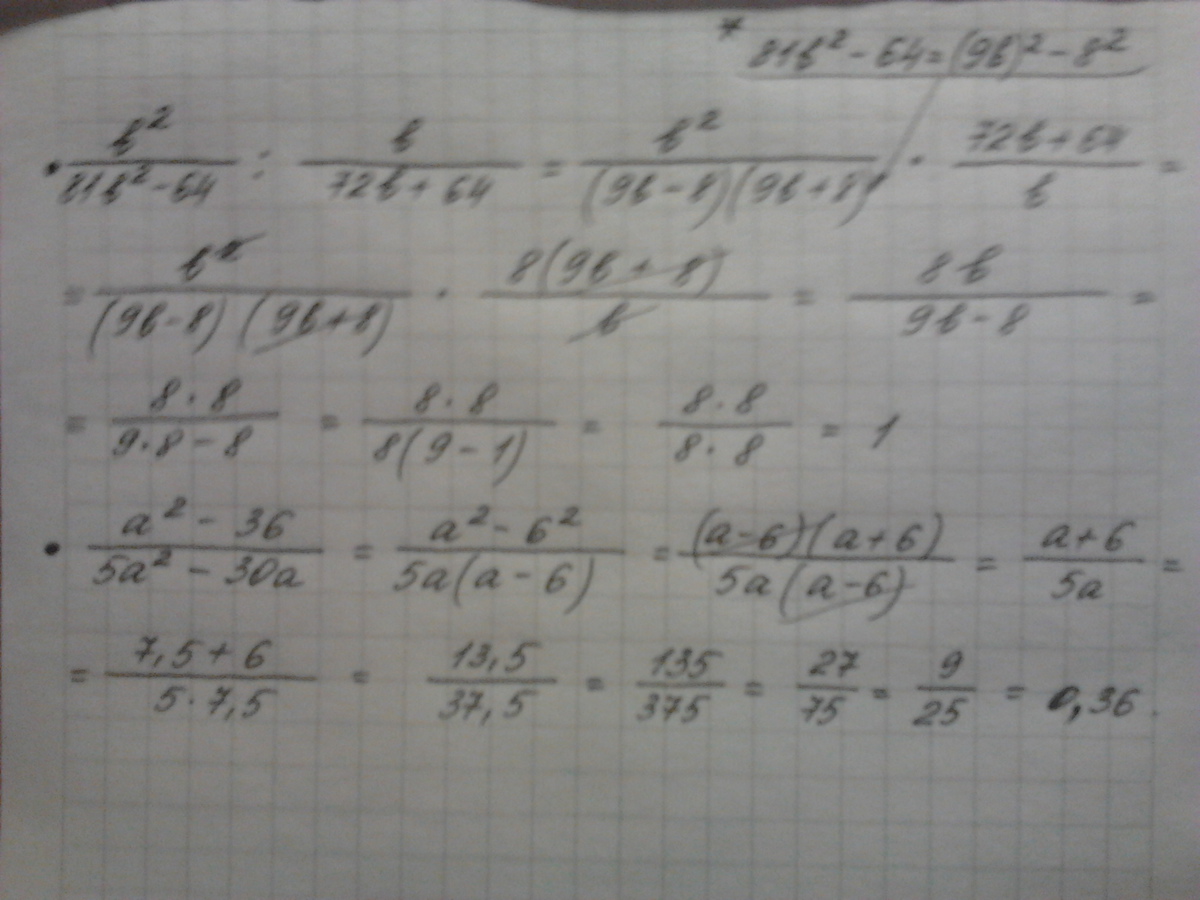 * 81b² - 64 = (9b)² - 8²
• b²/(81b² - 64) : b/(72b + 64) = b²/((9b - 8)(9b + 8)) · (72b + 64)/b =
= b²/((9b - 8)(9b + 8)) · 8(9b + 8)/b = 8b/(9b - 8) =
= (8 · 8)/(9 · 8 - 8) = (8 · 8)/(8(9 - 1)) = (8 · 8)/(8 · 8) = 1
• (a² - 36)/(5a² - 30a) = (a² - 6²)/(5a(a - 6)) = ((a - 6)(a + 6))/(5a(a - 6)) = (a + 6)/(5a) =
= (7,5 + 6)/(5 · 7,5) = 13,5/37,5 = 135/375 = 27/75 = 9/25 = 0,36.